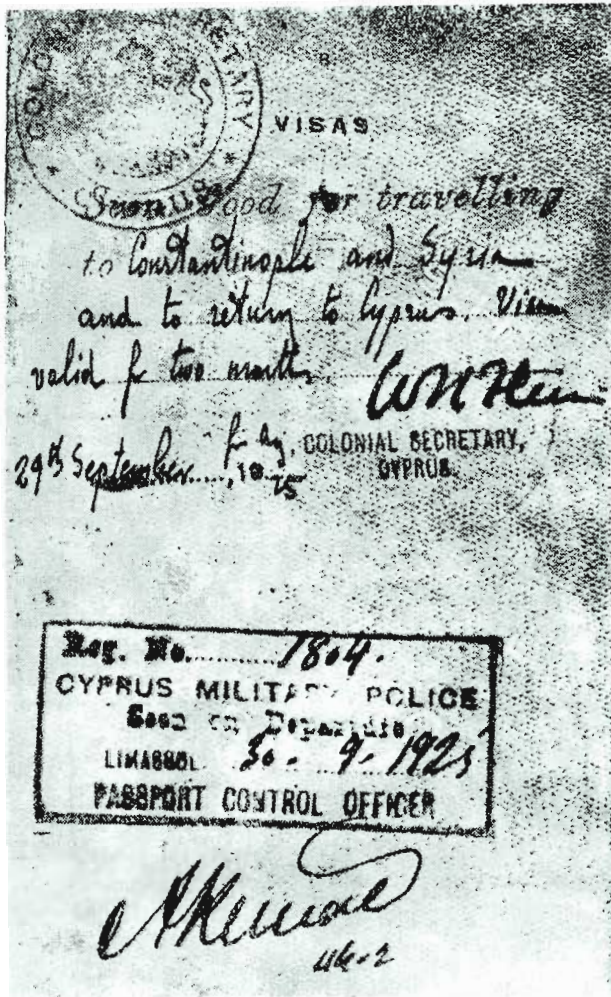 COLONIAL SECRETARY
CYPRUS
8
VISAS
Seen Good for travelling
to Constantinople and Syria
and to return to Cyprus. Visa
valid for two months.
for Ag. COLONIAL SECRETARY,
CYPRUS.
29th September, 1925
Reg. No. 1804.
CYPRUS MILITARY POLICE
Seen on Departure
LIMASSOL 30. 9. 1925
PASSPORT CONTROL OFFICER